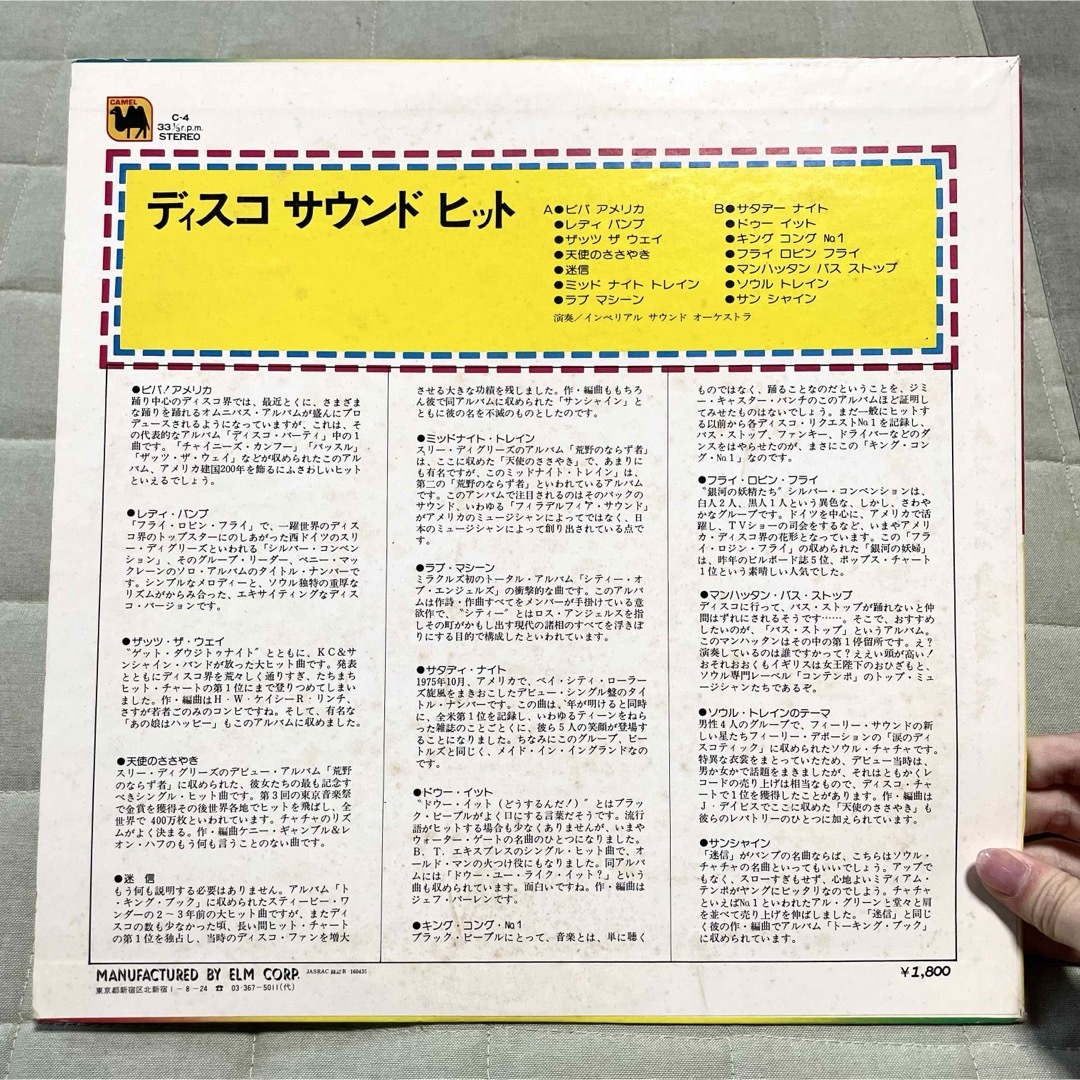 CAMEL
C-4
33 1/3 r.p.m.
STEREO
ディスコ サウンド ヒット
A●ビバ アメリカ
●レディ バンプ
●ザッツ ザ ウェイ
●天使のささやき
●迷信
●ミッド ナイト トレイン
●ラブ マシーン
B●サタデー ナイト
●ドゥー イット
●キング コング No.1
●フライ ロビン フライ
●マンハッタン バス ストップ
●ソウル トレイン
●サン シャイン
演奏/インペリアル サウンド オーケストラ
●ビバ!アメリカ
踊り中心のディスコ界では、最近とくに、さまざま
な踊りを踊れるオムニバス・アルバムが盛んにプロ
デュースされるようになっていますが、これは、そ
の代表的なアルバム「ディスコ・パーティ」中の1
曲です。「チャイニーズ・カンフー」「バッスル」
「ザッツ・ザ・ウェイ」などが収められたこのアル
バム、アメリカ建国200年を飾るにふさわしいヒット
といえるでしょう。
●レディ・バンプ
「フライ・ロビン・フライ」で、一躍世界のディス
コ界のトップスターにのしあがった西ドイツのスリ
ー・ディグリーズといわれる「シルバー・コンベン
ション」、そのグループ・リーダー、ペニー・マッ
クレーンのソロ・アルバムのタイトル・ナンバーで
す。シンプルなメロディーと、ソウル独特の重厚な
リズムがからみ合った、エキサイティングなディス
コ・バージョンです。
●ザッツ・ザ・ウェイ
“ゲット・ダウンジトゥナイト”とともに、KC&サ
ンシャイン・バンドが放った大ヒット曲です。発表
とともにディスコ界を荒々しく通りすぎ、たちまち
ヒット・チャートの第1位にまで登りつめてしまい
ました。作・編曲はH・W・ケイシーR・リンチ、
さすが若者ごのみのコンビですね。そして、有名な
「あの娘はハッピー」もこのアルバムに収めました。
●天使のささやき
スリー・ディグリーズのデビュー・アルバム「荒野
のならず者」に収められた、彼女たちの最も記念す
べきシングル・ヒット曲です。第3回の東京音楽祭
で金賞を獲得その後世界各地でヒットを飛ばし、全
世界で400万枚といわれています。チャチャのリズ
ムがよく決まる。作・編曲ケニー・ギャンブル&レ
オン・ハフのもう何も言うことのない曲です。
●迷信
もう何も説明する必要はありません。アルバム「ト
ーキング・ブック」に収められたスティービー・ワ
ンダーの2~3年前の大ヒット曲ですが、まだディ
スコの数も少なかった頃、長い間ヒット・チャート
の第1位を独占し、当時のディスコ・ファンを増大
させる大きな功績を残しました。作・編曲ももちろ
ん彼で同アルバムに収められた「サンシャイン」と
ともに彼の名を不滅のものとしたのです。
●ミッドナイト・トレイン
スリー・ディグリーズのアルバム「荒野のならず者」
は、ここに収めた「天使のささやき」で、あまりに
も有名ですが、このミッドナイト・トレイン」は、
第二の「荒野のならず者」といわれているアルバム
です。このアンバムで注目されるのはそのバックの
サウンド、いわゆる「フィラデルフィア・サウンド」
がアメリカのミュージシャンによってではなく、日
本のミュージシャンによって創り出されている点で
す。
●ラブ・マシーン
ミラクルズ初のトータル・アルバム「シティー・オ
ブ・エンジェルズ」の衝撃的な曲です。このアルバ
ムは作詩・作曲すべてをメンバーが手掛けている意
欲作で、“シティー”とはロス・アンジェルスを指し
その町がかもし出す現代の諸相のすべてを浮きぼ
りにする目的で構成したといわれています。
●サタディ・ナイト
1975年10月、アメリカで、ベイ・シティ・ローラー
ズ旋風をまきおこしたデビュー・シングル盤のタイ
トル・ナンバーです。この曲は、年が明けると同時
に、全米第1位を記録し、いわゆるティーンをねら
った雑誌のことごとくに、彼ら5人の笑顔が登場す
ることになりました。ちなみにこのグループ、ビー
トルズと同じく、メイド・イン・イングランドなの
です。
●ドゥー・イット
“ドゥー・イット(どうするんだ!)”とはブラッ
ク・ピープルがよく口にする言葉だそうです。流行
語がヒットする場合も少なくありませんが、いまや
ウォーター・ゲートの名曲のひとつになりました。
B.T.エキスプレスのシングル・ヒット曲で、オ
ールド・マンの火つけ役にもなりました。同アルバ
ムには「ドゥー・ユー・ライク・イット?」という
曲も収められています。面白いですね。作・編曲は
ジェフ・バーレンです。
●キング・コング・No.1
ブラック・ピープルにとって、音楽とは、単に聴く
ものではなく、踊ることなのだということを、ジミ
ー・キャスター・バンチのこのアルバムほど証明し
てみせたものはないでしょう。まだ一般にヒットす
る以前から各ディスコ・リクエストNo.1を記録し、
バス・ストップ、ファンキー、ドライバーなどのダ
ンスをはやらせたのが、まさにこの「キング・コン
グ・No.1」なのです。
●フライ・ロビン・フライ
“銀河の妖精たち”シルバー・コンベンションは、
白人2人、黒人1人という異色な、しかし、さわや
かなグループです。ドイツを中心に、アメリカで活
躍し、TVショーの司会をするなど、いまやアメリ
カ・ディスコ界の花形となっています。この「フラ
イ・ロジン・フライ」の収められた「銀河の妖婦」
は、昨年のビルボード誌5位、ポップス・チャート
1位という素晴しい人気でした。
●マンハッタン・バス・ストップ
ディスコに行って、バス・ストップが踊れないと仲
間はずれにされるそうです……。そこで、おすすめ
したいのが、「バス・ストップ」というアルバム。
このマンハッタンはその中の第1停留所です。ぇ?
演奏しているのは誰ですかって?ええい頭が高い!
おそれおおくもイギリスは女王陛下のおひざもと、
ソウル専門レーベル「コンテンポ」のトップ・ミュ
ージシャンたちであるぞ。
●ソウル・トレインのテーマ
男性4人のグループで、フィーリー・サウンドの新
しい星たちフィーリー・デボーションの「涙のディ
スコティック」に収められたソウル・チャチャです。
特異な衣裳をまとっていたため、デビュー当時は、
男か女かで話題をまきましたが、それはともかくレ
コードの売り上げは相当なもので、ディスコ・チャ
ートで1位を獲得したことがあります。作・編曲は
J・デイビスでここに収めた「天使のささやき」も
彼らのレパトリーのひとつに加えられています。
●サンシャイン
「迷信」がバンプの名曲ならば、こちらはソウル・
チャチャの名曲といってもいいでしょう。アップで
もなく、スローすぎもせず、心地よいミディアム・
テンポがヤングにピッタリなのでしょう。チャチャ
といえばNo.1といわれたアル・グリーンと堂々と肩
を並べて売り上げを伸ばしました。「迷信」と同じ
く彼の作・編曲でアルバム「トーキング・ブック」
に収められています。
MANUFACTURED BY ELM CORP. JASRAC 録認R-160435
東京都新宿区北新宿1-8-24 ☎ 03-367-5011(代)
¥1,800